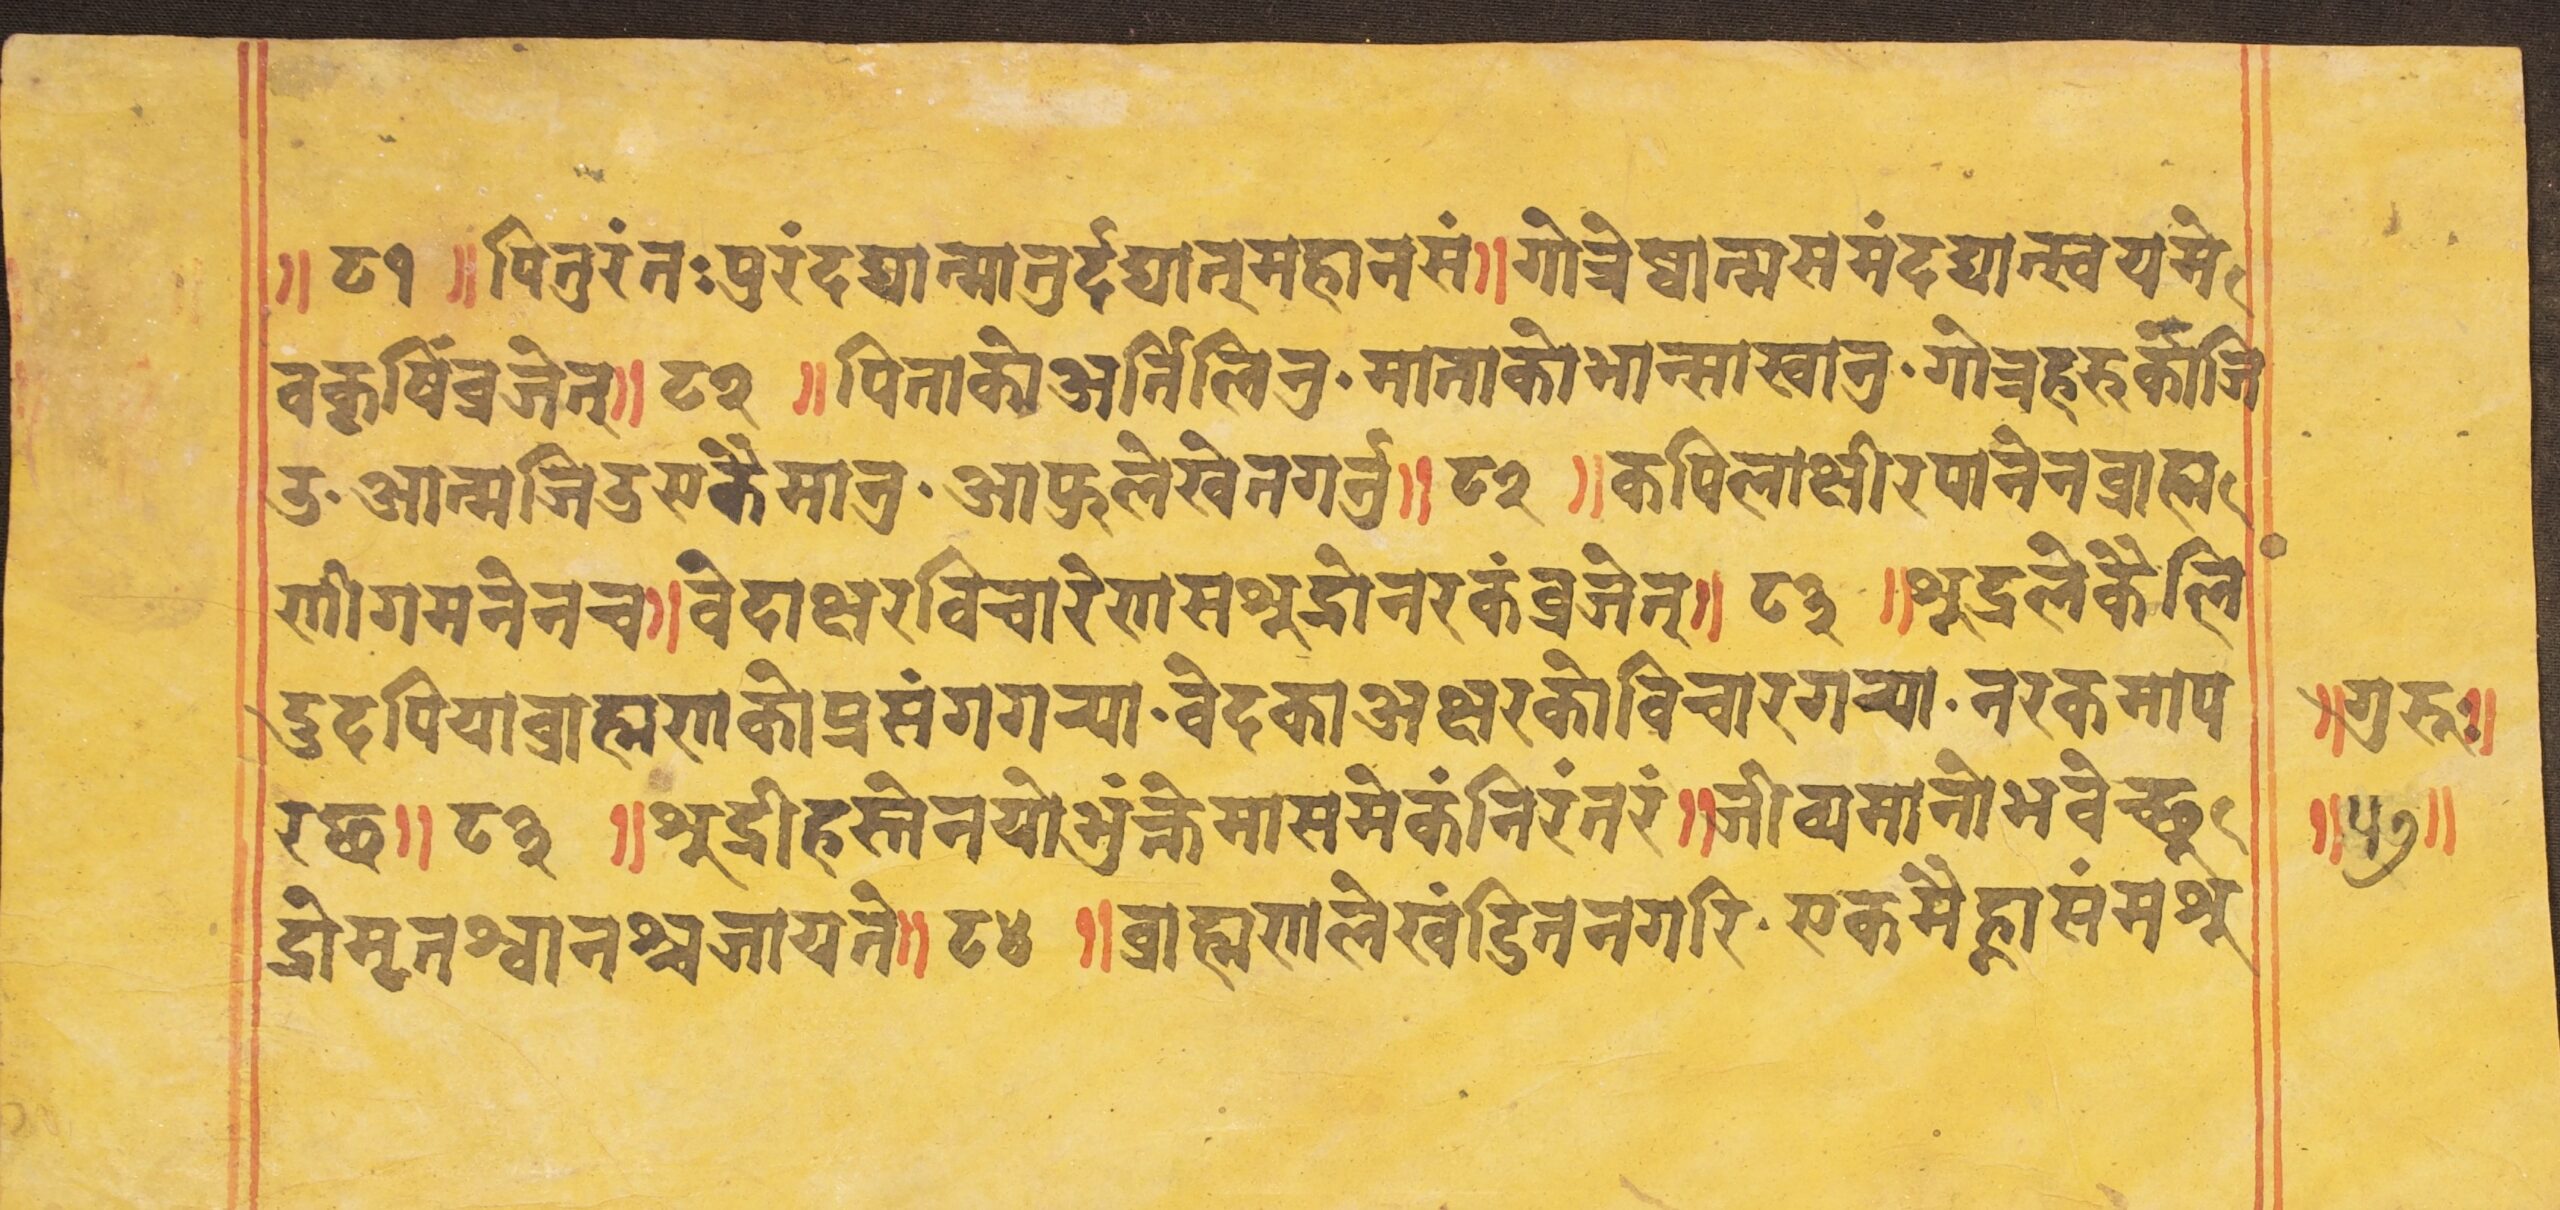 ॥ ८१ ॥ पितुरंतःपुरंदद्यान्मातुर्दद्यात्महानसं॥ गोत्रेष्वात्मसमंदद्यात्स्वयमे
वकृषिंव्रजेत्॥ ८२ ॥ पिताको अर्तिलिनु · माताको भान्साखानु · गोत्रहरुकोजि
उ · आत्मजिउसर्कैमानु · आफुलेखेनगर्नु॥ ८२ ॥ कपिलाक्षीरपानेनब्राह्म
णीगमनेनच॥ वेदाक्षरविचारेणसशूद्रोनरकंव्रजेत्॥ ८३ ॥ शूद्रलेकैलि
दुदपियाब्राह्मणकोप्रसंगगर्‍या · वेदकाअक्षरकोविचारगर्‍या · नरकमाप
रछ॥ ८३ ॥ शूद्रीहस्तेनयोभुंक्तेमासमेकंनिरंतरं॥ जीव्यमानोभवेच्छू
द्रोमृतश्वानश्चजायते॥ ८४ ॥ ब्राह्मणलेखंडितनगरि · एकमैह्नासंमशू
॥गुरुः॥
॥५७॥